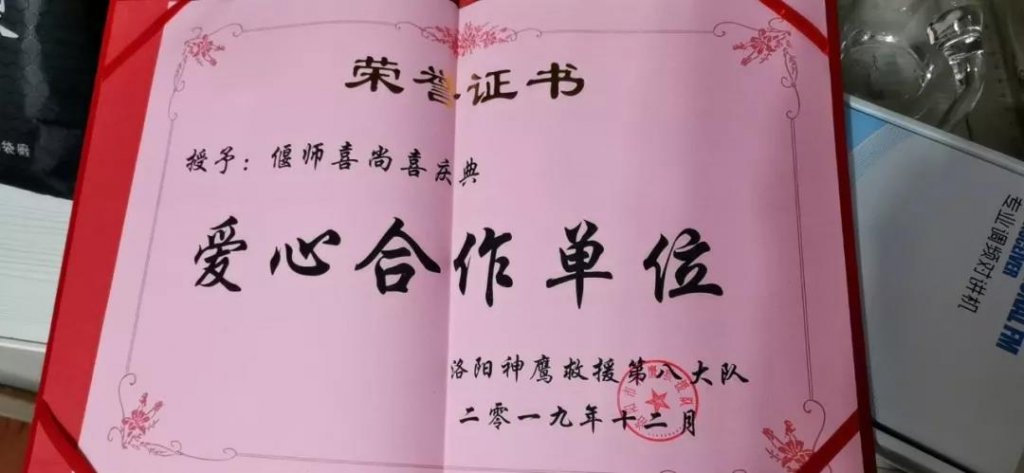 荣誉证书
授予：偃师喜尚喜庆典
爱心合作单位
洛阳神鹰救援第八大队
二零一九年十二月
专业调频对讲机